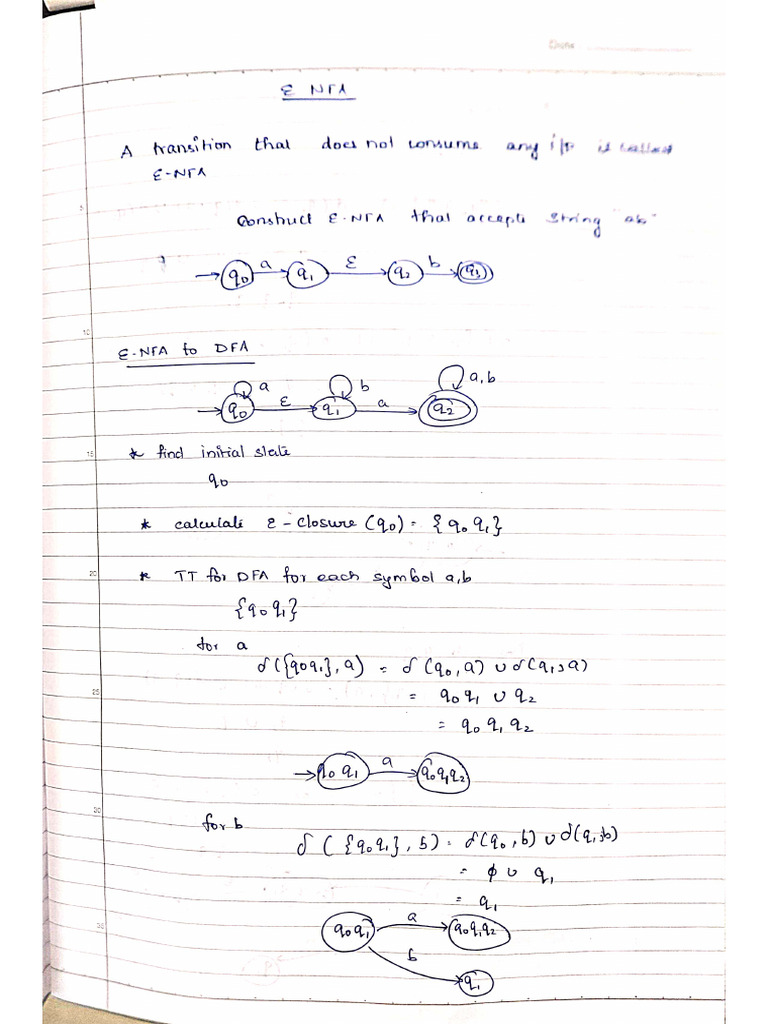 Date
ε NFA
A transition that does not consume any i/p is called
ε-NFA
5
Construct ε-NFA that accepts string "ab"
q0 a q1 ε q2 b q3
10
ε-NFA to DFA
a b a,b
q0 ε q1 a q2
15
* find initial state
q0
* calculate ε-closure (q0) = {q0 q1}
20
* TT for DFA for each symbol a,b
{q0 q1}
for a
δ({q0q1}, a) = δ(q0, a) ∪ δ(q1, a)
25
= q0 q1 ∪ q2
= q0 q1 q2
q0 q1 a q0q1q2
30
for b
δ ({q0q1}, b) = δ(q0, b) ∪ δ(q1, b)
= ϕ ∪ q1
= q1
35
q0q1 a q0q1q2
b
q1